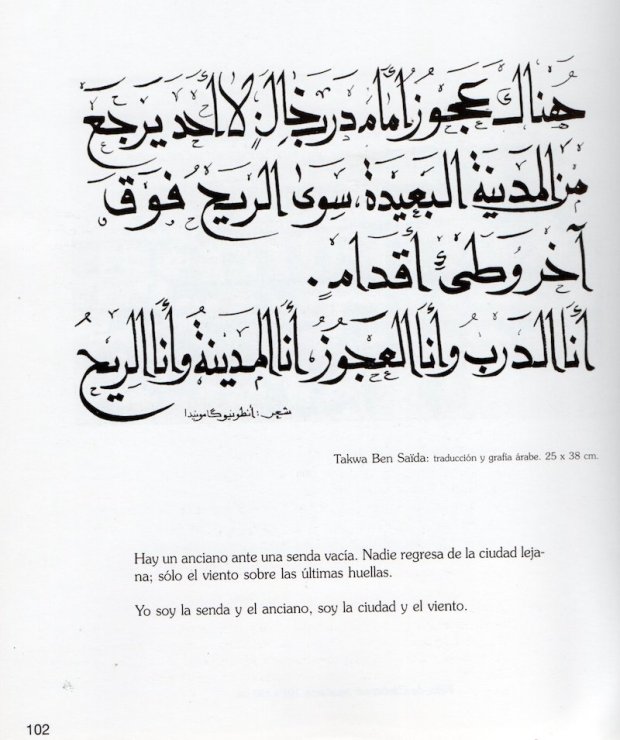 هناك عجوز أمام درب خالٍ. لا أحد يرجع
من المدينة البعيدة، سوى الريح فوق
آخر وطئ أقدام.
أنا الدرب وأنا العجوز، أنا المدينة وأنا الريح
شعر: أنطونيو گامونيدا
Takwa Ben Saïda: traducción y grafía árabe. 25 x 38 cm.
Hay un anciano ante una senda vacía. Nadie regresa de la ciudad leja-
na; sólo el viento sobre las últimas huellas.
Yo soy la senda y el anciano, soy la ciudad y el viento.
102